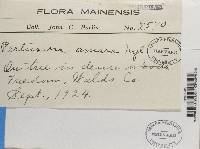 FLORA MAINENSIS
Coll. John C. Parlin No. 2570
Pertusaria amara Nyl
On tree in dense woods
Freedom, Waldo Co
Sept., 1924.